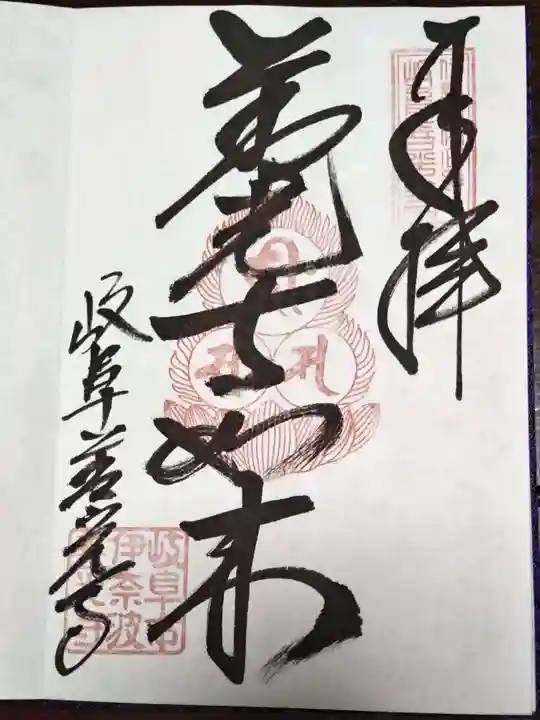 奉拝
善光寺如来
岐阜善光寺
岐阜市
伊奈波